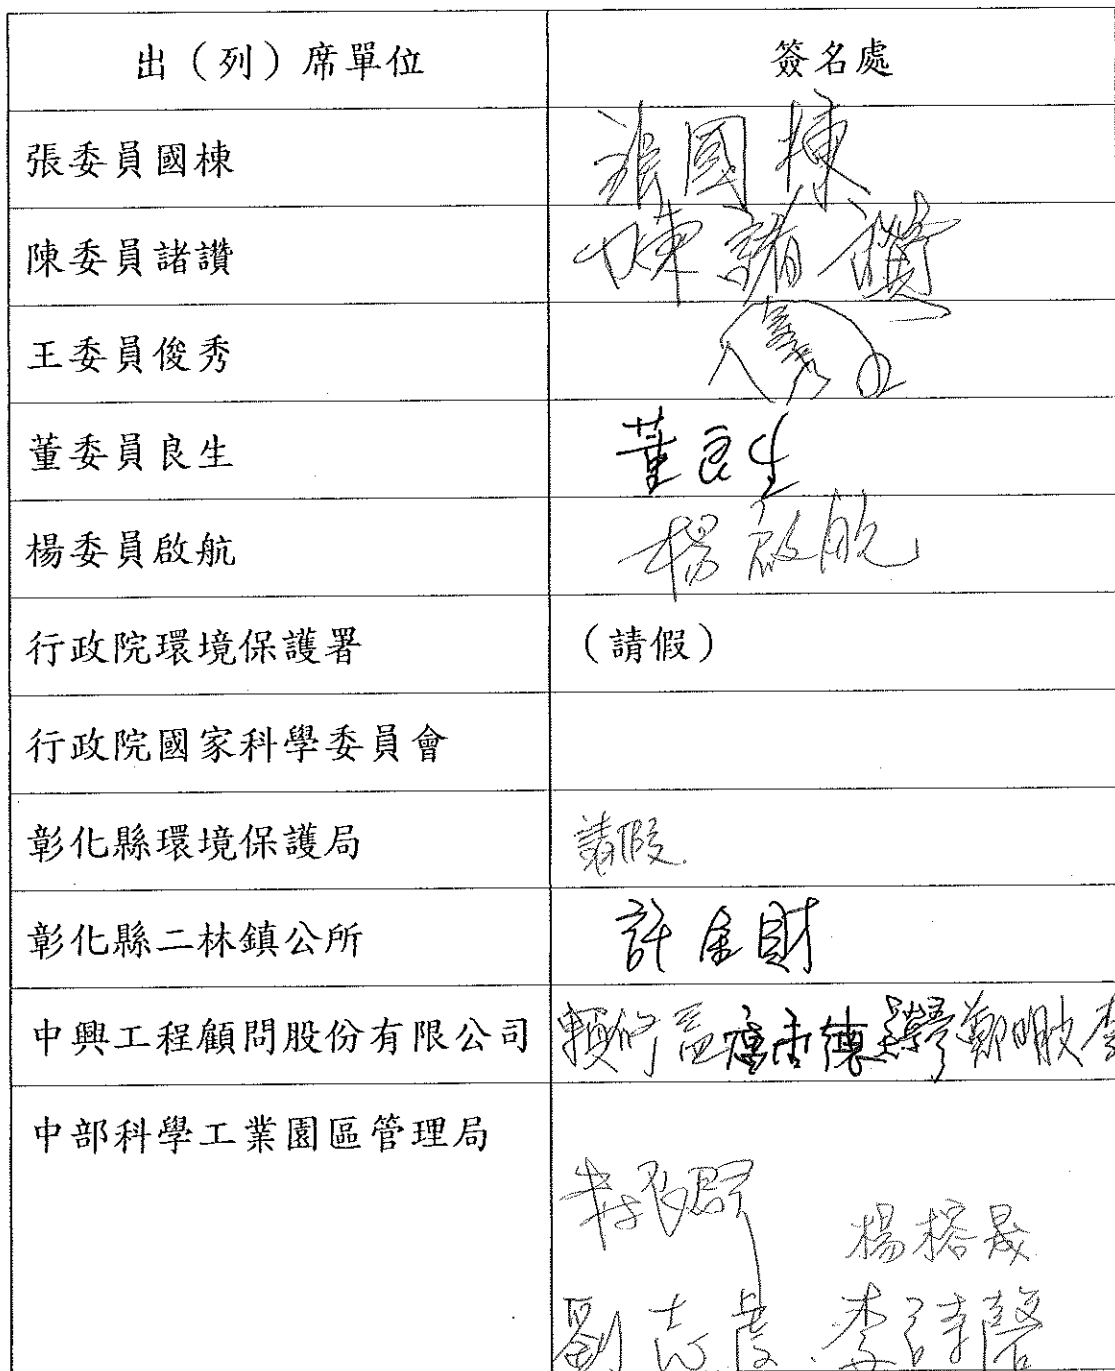 出（列）席單位 簽名處
張委員國棟 張國棟
陳委員諸讚 陳諸讚
王委員俊秀
董委員良生 董良生
楊委員啟航 楊啟航
行政院環境保護署 （請假）
行政院國家科學委員會
彰化縣環境保護局 請假
彰化縣二林鎮公所 許金財
中興工程顧問股份有限公司 賴 鄭明 李
中部科學工業園區管理局
楊榕晟
劉志 李詩馨